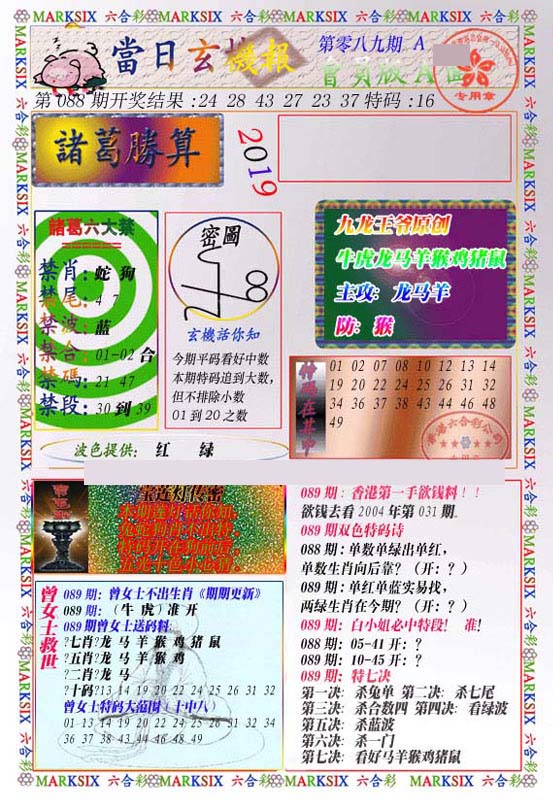 MARKSIX 六合彩 MARKSIX 六合彩 MARKSIX 六合彩 MARKSIX 六合彩
當日玄機報
第零八九期 A
會員版A面
专用章
第 088 期开奖结果 :24 28 43 27 23 37 特码 :16
諸葛勝算
2019
諸葛六大禁
禁肖: 蛇 狗
禁尾: 4 7
禁波: 蓝
禁合: 01-02 合
禁碼: 21 47
禁段: 30 到 39
密圖
玄機話你知
今期平码看好中数
本期特码追到大数,
但不排除小数
01 到 20 之数
九龙王爷原创
牛虎龙马羊猴鸡猪鼠
主攻: 龙马羊
防: 猴
特码在其中
01 02 07 08 10 12 13 14
19 20 22 24 25 26 31 32
34 36 37 38 43 44 46 48
49
波色提供: 红 绿
宝莲灯传密
089 期: 香港第一手欲钱料!!
欲钱去看 2004 年第 031 期.
089 期双色特码诗
088 期: 单数单绿出单红,
单数生肖向后靠? (开: ? )
089 期: 单红单蓝实易找,
两绿生肖在今期? (开: ? )
089 期: 白小姐必中特段! 准!
088 期: 05-41 开: ?
089 期: 10-45 开: ?
089 期: 特七决
第一决: 杀兔单 第二决: 杀七尾
第三决: 杀合数四 第四决: 看绿波
第五决: 杀蓝波
第六决: 杀一门
第七决: 看好马羊猴鸡猪鼠
曾女士救世
089 期: 曾女士不出生肖《期期更新》
089 期: (牛 虎) 准 开
089 期曾女士送码料:
?七肖?龙 马 羊 猴 鸡 猪 鼠
?五肖?龙 马 羊 猴 鸡
?二肖?龙 马
?十码?13 14 19 20 22 24 25 26 31 32
曾女士特码大范围 (十中八)
01 13 14 19 20 22 24 25 26 31 32 34
36 37 38 43 44 46 48 49
MARKSIX 六合彩 MARKSIX 六合彩 MARKSIX 六合彩 MARKSIX 六合彩